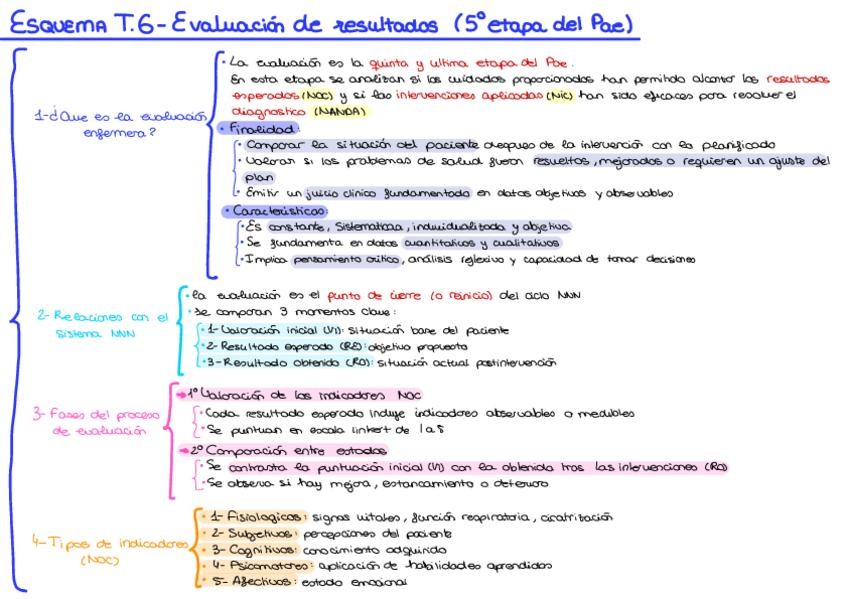 ESQUEMA T.6 - Evaluación de resultados (5º etapa del Pae)
1-¿Que es la evaluación enfermera?
· La evaluación es la quinta y ultima etapa del Pae.
En esta etapa se analizan si los cuidados proporcionados han permitido alcanzar los resultados
esperados (NOC) y si las intervenciones aplicadas (NIC) han sido eficaces para resolver el
diagnostico (NANDA)
· Finalidad:
· Comparar la situación del paciente despues de la intervención con la planificado
· Valoran si los problemas de salud fueron resueltos, mejorados o requieren un ajuste del
plan
· Emitir un juicio clinico fundamentado en datos objetivos y observables
· Caracteristicas:
· Es constante, Sistematica, individualizada y objetiva
· Se fundamenta en datos cuantitativos y cualitativos
· Implica pensamiento critico, análisis reflexivo y capacidad de tomar decisiones
2- Relaciones con el
sistema NNN
· la evaluación es el punto de cierre (o reinicio) del ciclo NNN
· Se comparan 3 momentos clave:
· 1- Valoración inicial (VI): Situación base del paciente
· 2- Resultado esperado (RE): objetivo propuesto
· 3- Resultado obtenido (RO): situación actual postintervención
3- Fases del proceso
de evaluación
→ 1º Valoración de los indicadores NOC
· Cada resultado esperado incluye indicadores observables o medibles
· Se puntuan en escala linkert de 1 a 5
→ 2º Comparación entre estados
· Se contrasta la puntuación inicial (VI) con la obtenida tras las intervenciones (RO)
· Se observa si hay mejora, estancamiento o deterioro
4- Tipos de indicadores
(NOC)
· 1- Fisiologicos: signos vitales, función respiratoria, cicatrización
· 2- Subjetivos: percepciones del paciente
· 3- Cognitivos: conocimiento adquirido
· 4- Psicomotores: aplicación de habilidades aprendidas
· 5- Afectivos: estado emocional